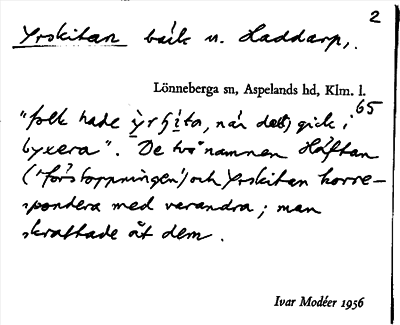 2
Yrskitan bäck n. Haddarp,.
Lönneberga sn, Aspelands hd, Klm. l.
65
"folk hade ỳrʃìta, när de(t) gick i
byxera". De två namnen Häftan
('förstoppningen') och Yrskitan korre-
spondera med varandra; man
skrattade åt dem.
Ivar Modéer 1956